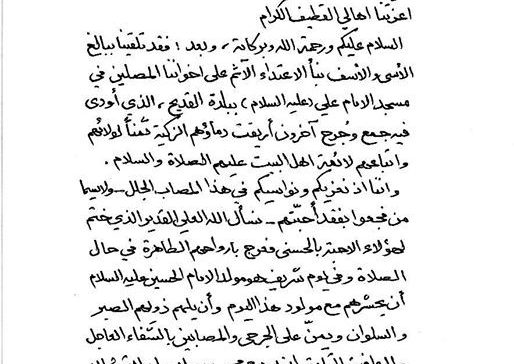 اعزتنا اهالي القطيف الكرام
السلام عليكم ورحمة الله وبركاته، وبعد: فقد تلقينا ببالغ
الأسى والأسف نبأ الاعتداء الآثم على اخواننا المصلين في
مسجد الامام علي (عليه السلام) ببلدة القديح، الذي أودى
فيه جمع وجُرح آخرون أريقت دماؤهم الزكية ثمناً لولائهم
واتباعهم لائمة اهل البيت عليهم الصلاة والسلام.
واننا اذ نعزيكم ونواسيكم في هذا المصاب الجلل - ولاسيما
من فجعوا بفقد أحبّتهم - نسأل الله العلي القدير الذي ختم
لهؤلاء الاحبة بالحسنى فعرج بارواحهم الطاهرة في حال
الصلاة وفي يوم شريف هو مولد الامام الحسين عليه السلام
أن يحشرهم مع مولود هذا اليوم وأن يلهم ذويهم الصبر
والسلوان ويمنّ على الجرحى والمصابين بالشفاء العاجل